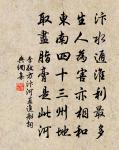 汴水通淮利最多
生人為害亦相和
東南四十三州地
取盡脂膏是此河
李敬方汴河直進船